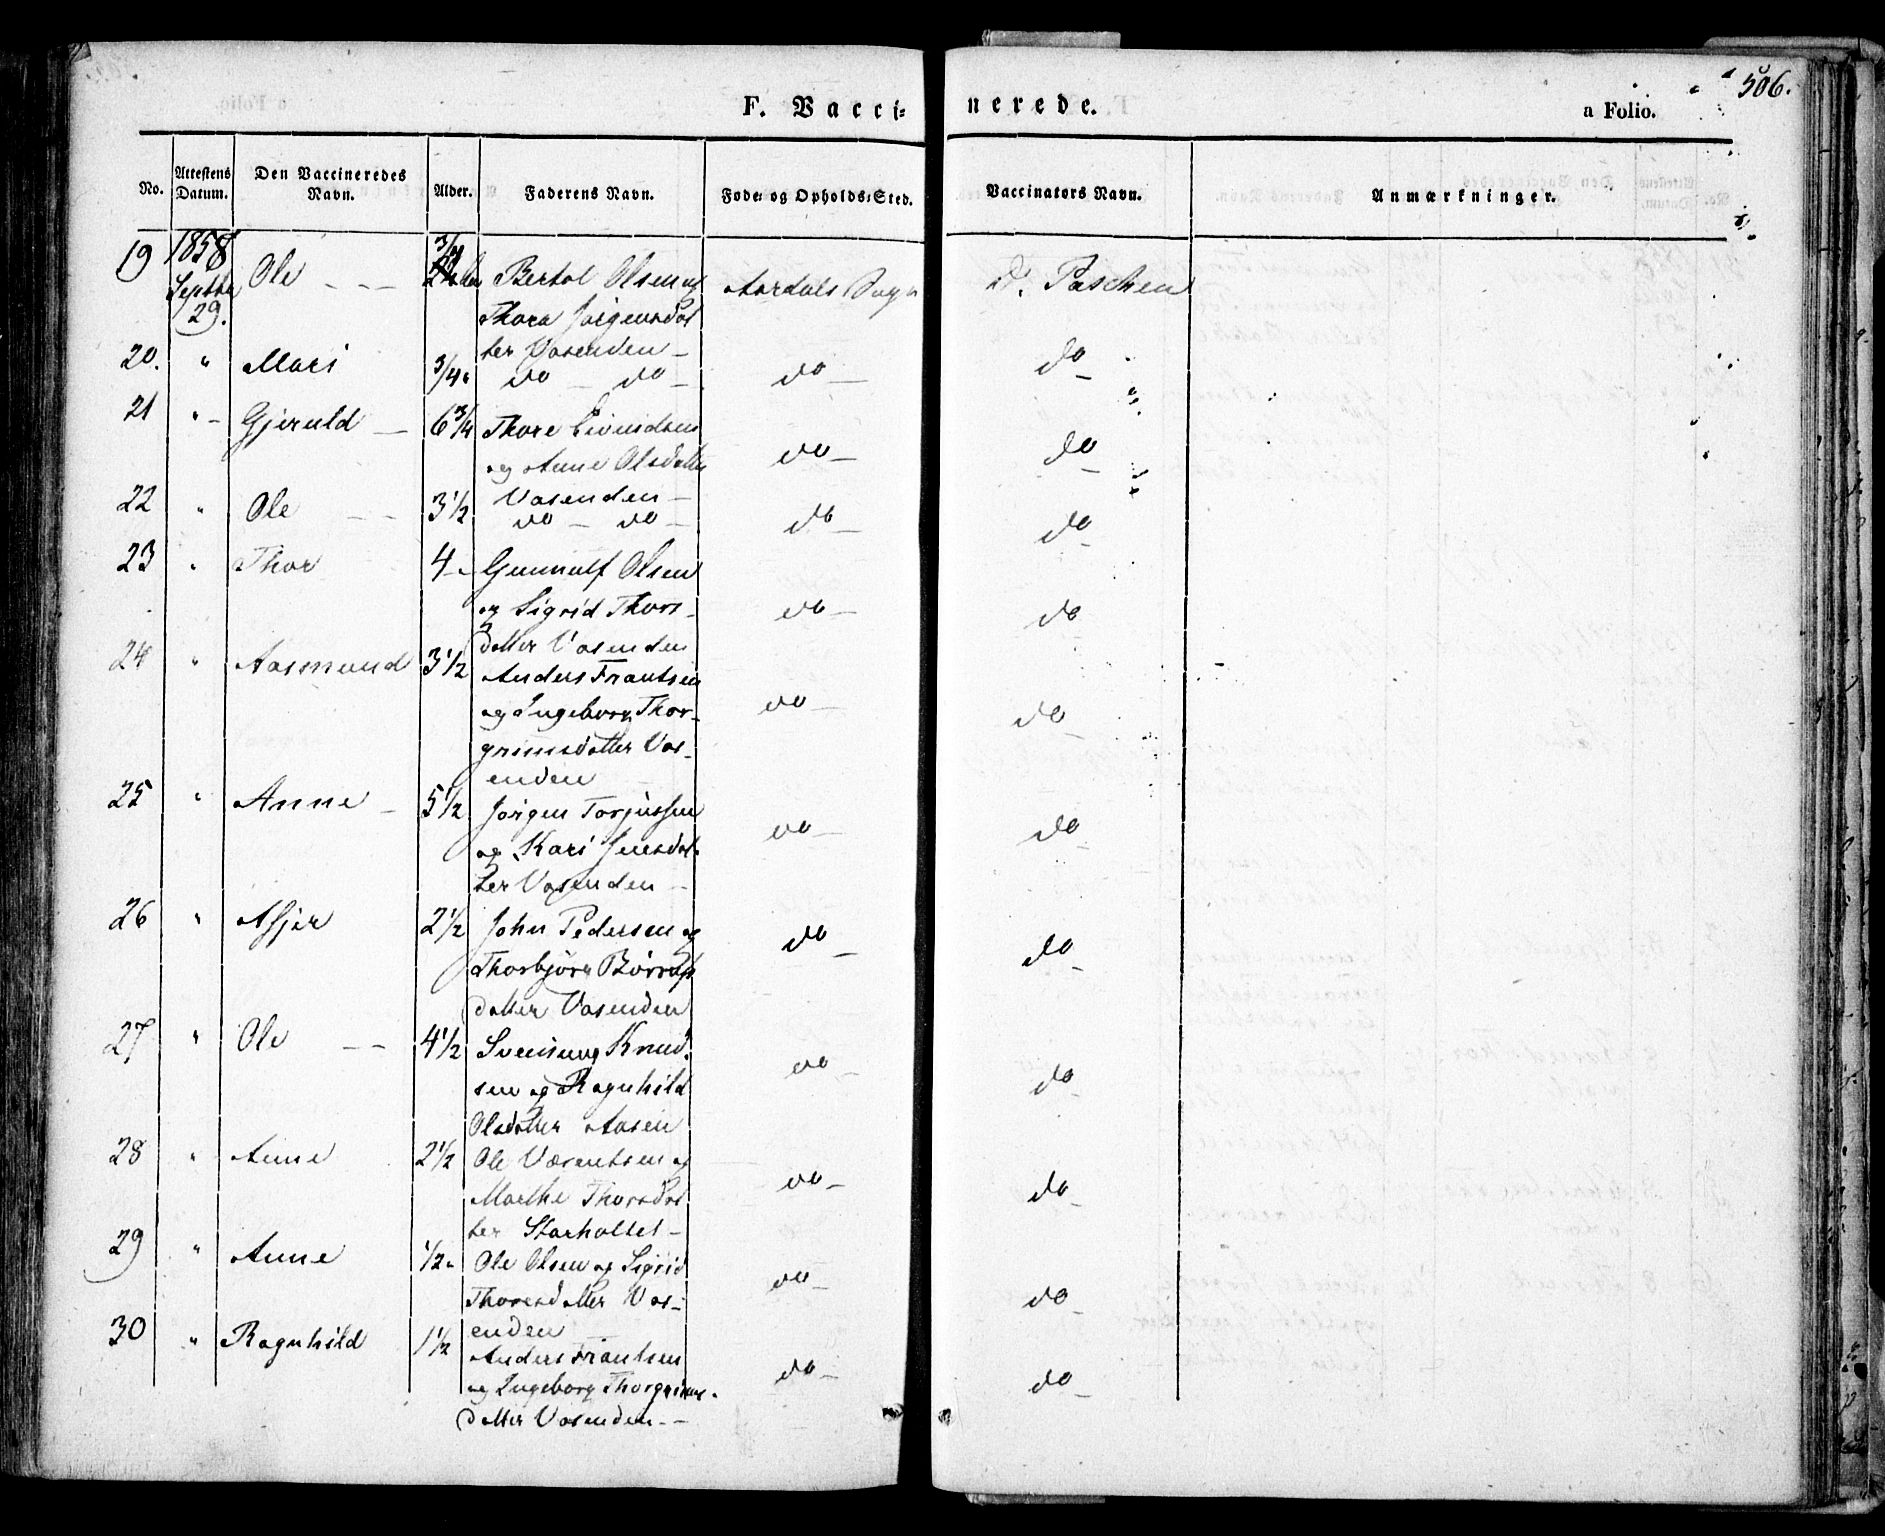 506.
F. Vacci=nerede. a Folio.
No. Attestens Datum. Den Vaccineredes Navn. Alder. Faderens Navn. Føde= og Opholds=Sted. Vaccinators Navn. Anmærkninger.
19 1858 Septbr 29. Ole — — — 3/4 Bertol Olsen og Aardals Sogn Dr. Paschen
Thora Jørgensdat
ter Vasenden —
20. " Mari 3/4 do — do — do — do —
21 " — Gjeruld — 6 3/4 Thore Eivindsen do — do —
og Anne Olsdatter
Vasenden —
22 " Ole — — 3 1/2 do — do — do — do —
23 " Thor 4 — Gunnulf Olsen do — do
og Sigrid Thors-
datter Vasenden
24 " Aasmund 3 1/2 Anders Frantsen do — do
og Ingeborg Thor-
grimsdatter Vas-
enden
25 " Anne — 5 1/2 Jørgen Torjussen do — do —
og Kari Jensdat-
ter Vasenden —
26 " Asjer 2 1/2 John Pedersen og do — do —
Thorbjørg
datter Vasenden
27 " Ole — — 4 1/2 Svenung Knud- do — do —
sen og Ragnhild
Olsdatter Aasen
28 " Anne 2 1/2 Ole og do — do —
Marthe Thorsdat
ter Storholtet —
29 " Anne 1/2 " Ole Olsen og Sigrid do — do —
Thoresdatter Vas-
enden
30 " Ragnhild 1 1/2 Anders Frantsen do — do —
og Ingeborg Thorgrims-
datter Vasenden —